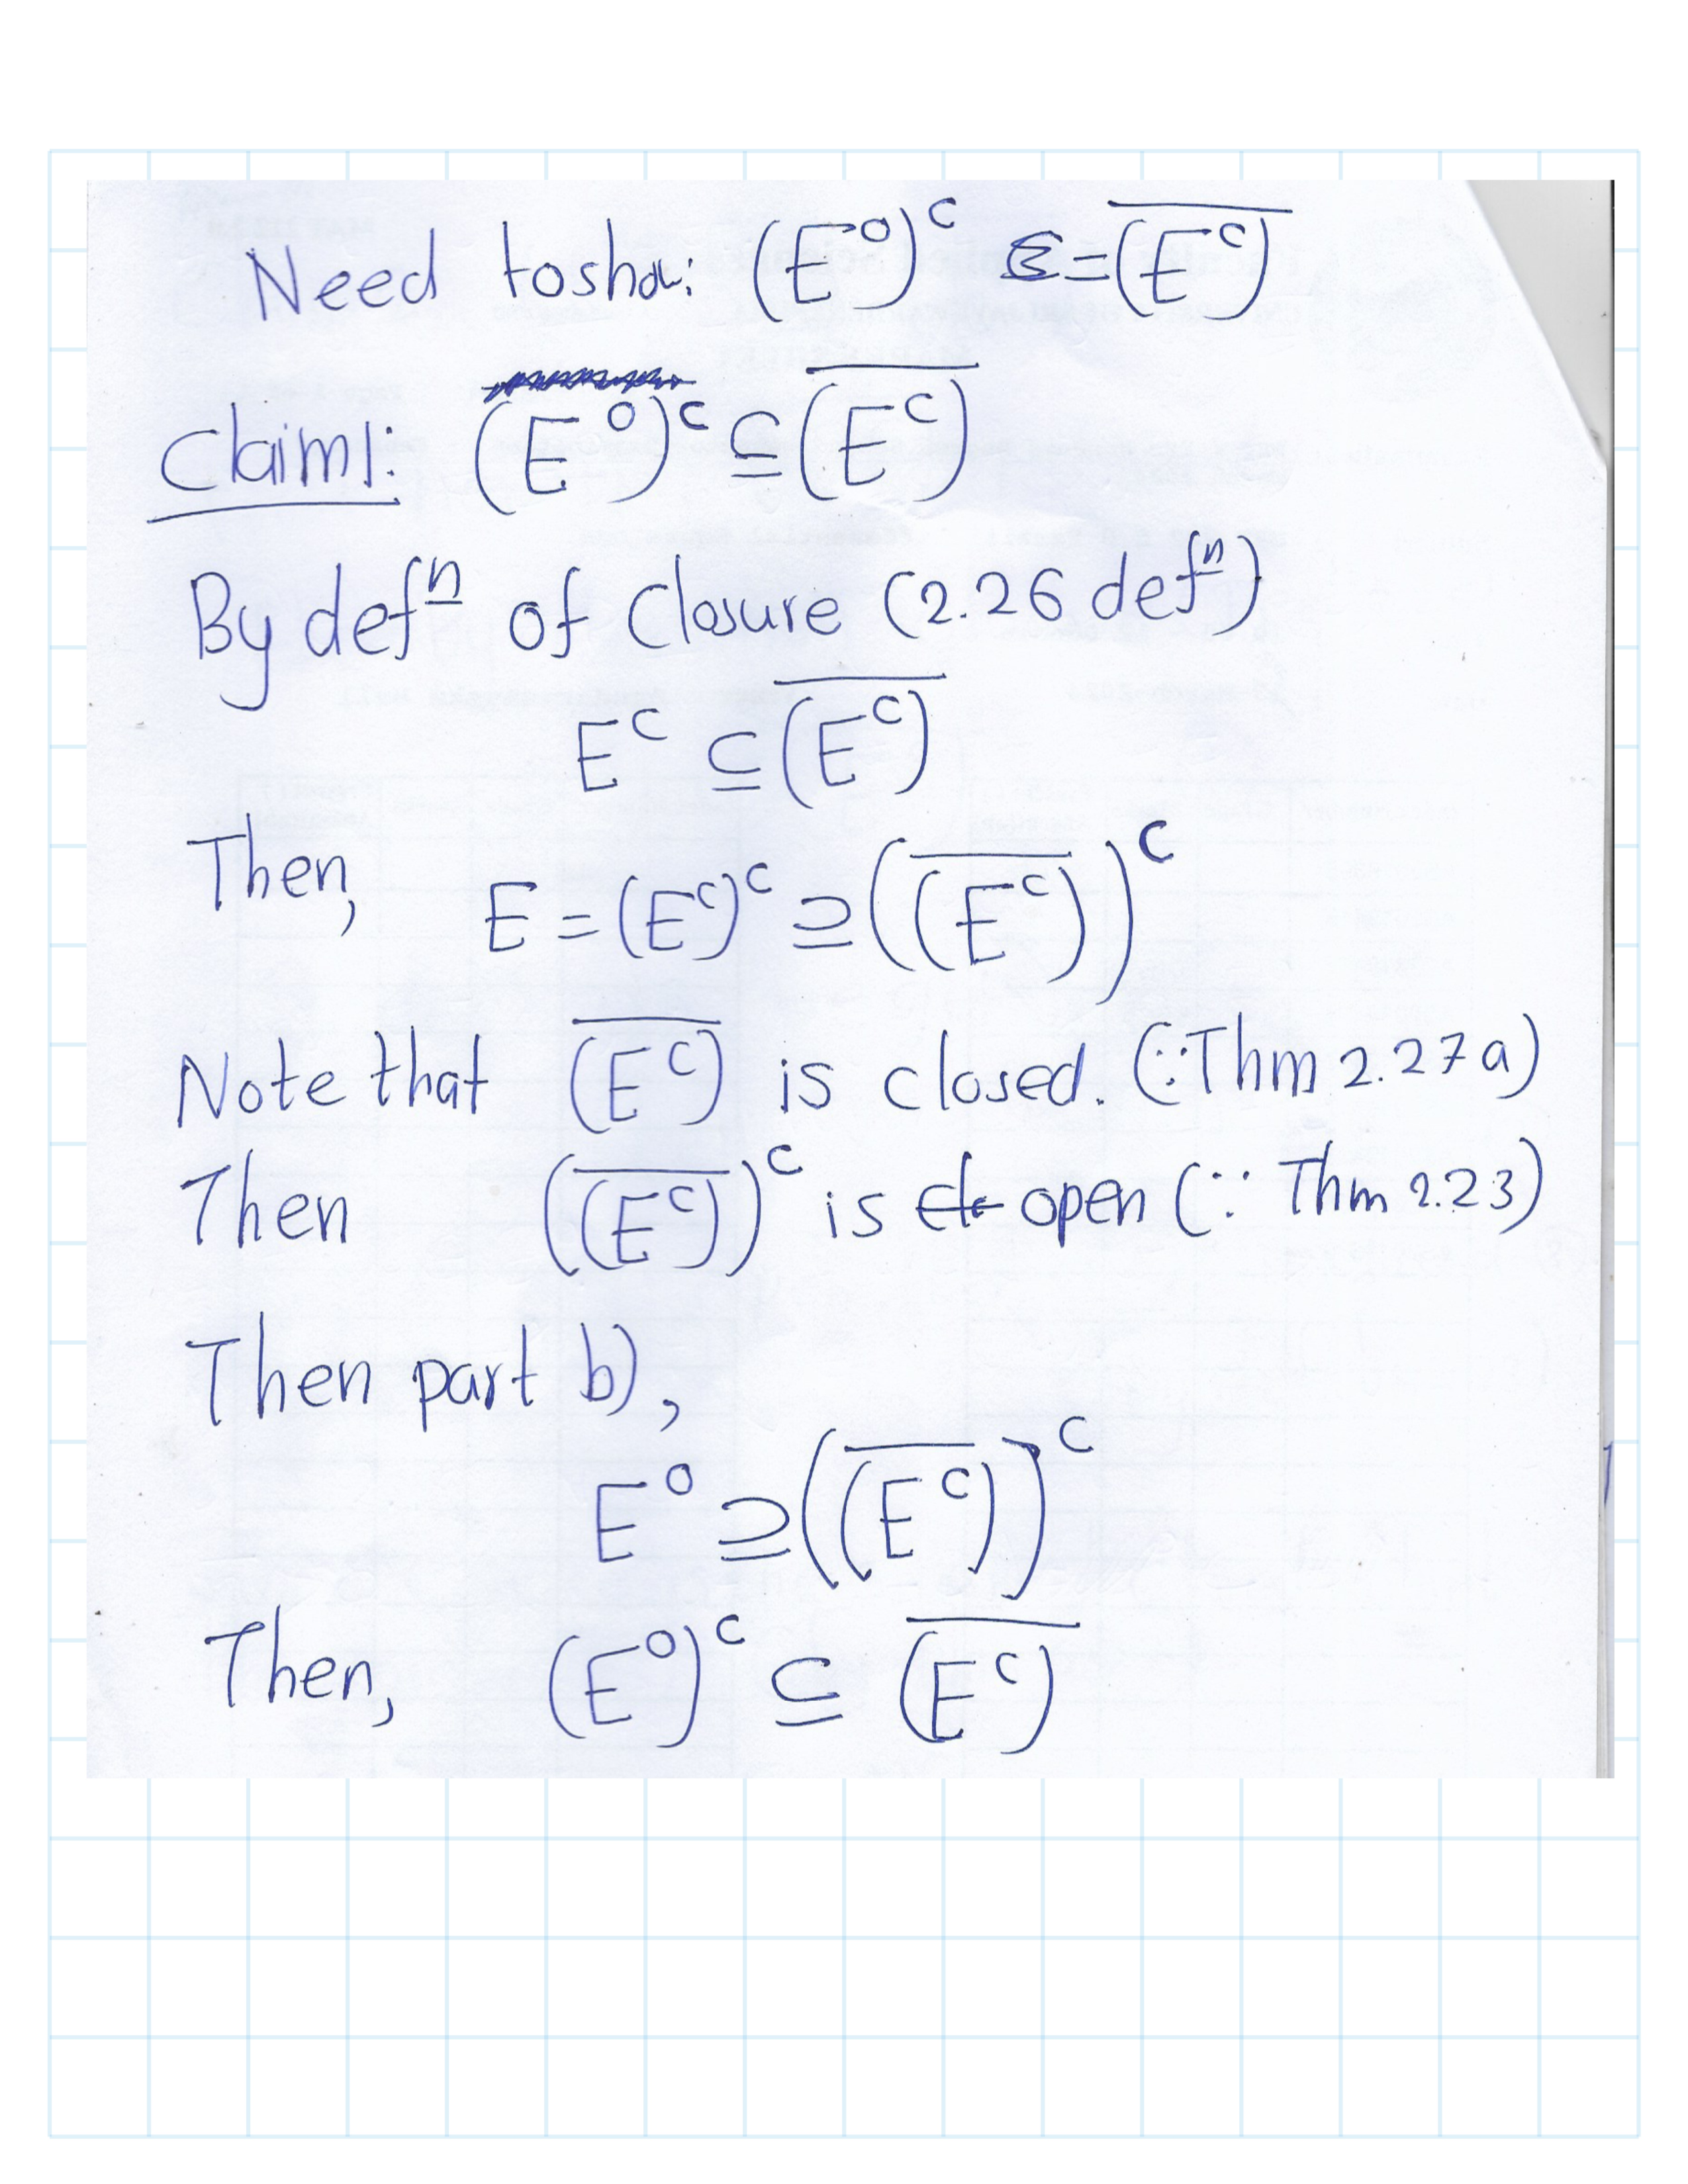 Need tosho: (E°)ᶜ = \overline{(Eᶜ)}
Claim1: (E°)ᶜ ⊆ \overline{(Eᶜ)}
By defⁿ of Closure (2.26 defⁿ)
Eᶜ ⊆ \overline{(Eᶜ)}
Then, E = (Eᶜ)ᶜ ⊇ (\overline{(Eᶜ)})ᶜ
Note that \overline{(Eᶜ)} is closed. (∵Thm 2.27 a)
Then (\overline{(Eᶜ)})ᶜ is open (∵ Thm 2.23)
Then part b),
E° ⊇ (\overline{(Eᶜ)})ᶜ
Then, (E°)ᶜ ⊆ \overline{(Eᶜ)}